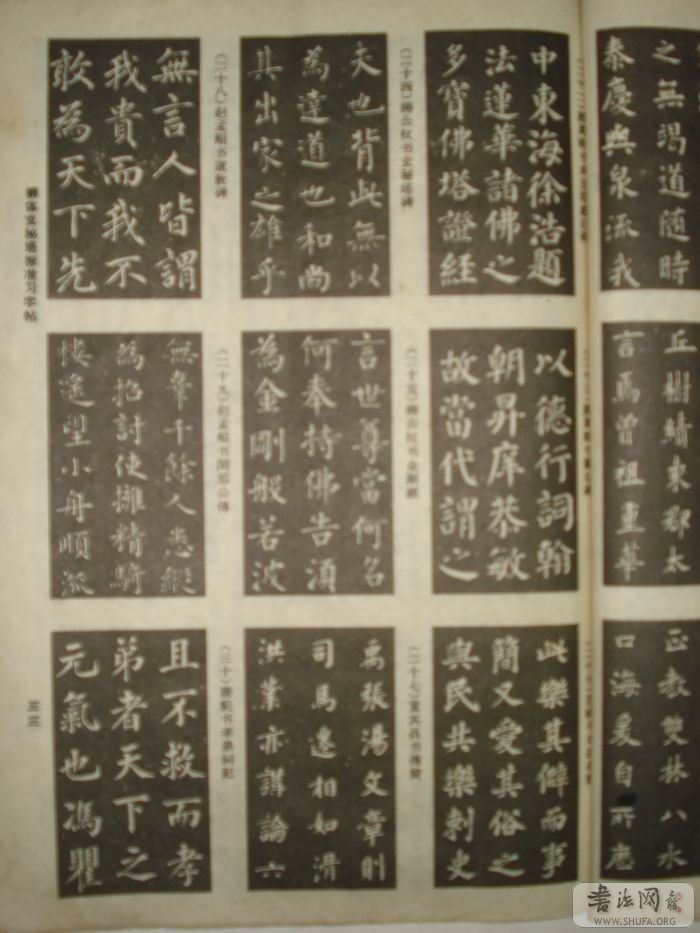 之無竭道随時
泰慶與泉流我
中東海徐浩題
法蓮華諸佛之
多寶佛塔證經
（二十四）柳公权书玄秘塔碑
夫也背此無以
為達道也和尚
其出家之雄乎
（二十八）赵孟頫书道教碑
無言人皆謂
我貴而我不
敢為天下先
丘樹績東郡太
言焉曾祖重華
以德行詞翰
朝昇庠恭敏
故當代謂之
（二十五）柳公权书金剛經
言世尊當何名
何奉持佛告須
為金剛般若波
（二十九）赵孟頫书閑邪公傳
無辜千餘人悉縱
為招討使擁精騎
樓遥望小舟順流
正教雙林八水
口海爰自所應
此樂其僻而事
簡又愛其俗之
與民共樂刺史
（二十七）董其昌书傳贊
禹張湯文章則
司馬遷相如滑
洪業亦講論六
（三十）唐駝书孝弟祠記
且不救而孝
弟者天下之
元氣也馮瞿
柳体玄秘塔标准习字帖
三三
书法网
WWW.SHUFA.ORG